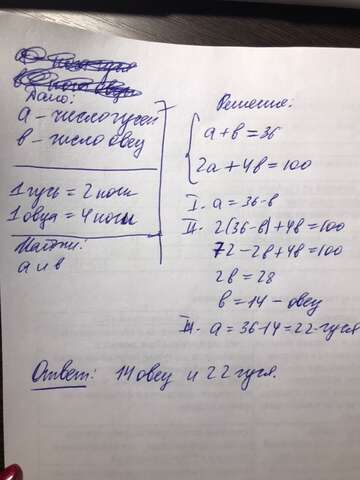 Дано:
а - число гусей
в - число овец
1 гусь = 2 ноги
1 овца = 4 ноги
Найти:
а и в
Решение:
а + в = 36
2а + 4в = 100
I. а = 36-в
II. 2(36-в)+4в=100
72-2в+4в=100
2в = 28
в = 14 - овец
III. а = 36-14=22-гуся
Ответ: 14 овец и 22 гуся.